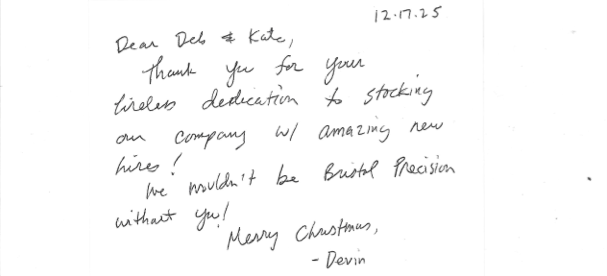 12.17.25
Dear Deb & Kate,
Thank you for your
tireless dedication to stocking
our company w/ amazing new
hires!
We wouldn't be Bristol Precision
without you!
Merry Christmas,
- Devin